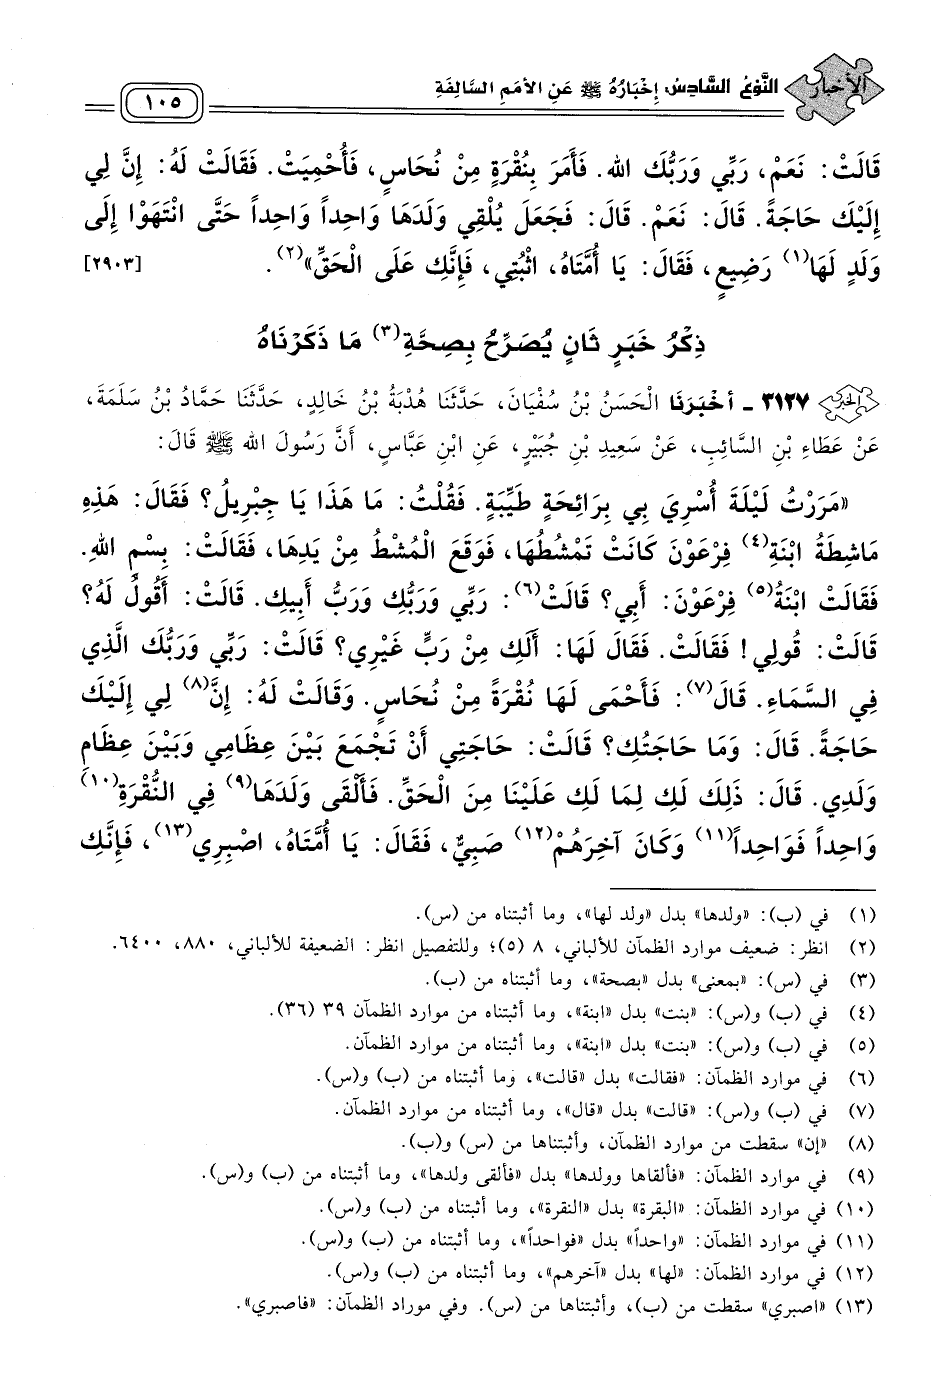 الأخبار
النَّوْعُ السَّادِسُ إِخْبَارُهُ ﷺ عَنِ الأُمَمِ السَّالِفَةِ
١٠٥
قَالَتْ: نَعَمْ، رَبِّي وَرَبُّكَ الله. فَأَمَرَ بِنُقْرَةٍ مِنْ نُحَاسٍ، فَأُحْمِيَتْ. فَقَالَتْ لَهُ: إِنَّ لِي
إِلَيْكَ حَاجَةً. قَالَ: نَعَمْ. قَالَ: فَجَعَلَ يُلْقِي وَلَدَهَا وَاحِداً وَاحِداً حَتَّى انْتَهَوْا إِلَى
وَلَدٍ لَهَا(١) رَضِيعٍ، فَقَالَ: يَا أُمَّتَاهُ، اثْبُتِي، فَإِنَّكِ عَلَى الْحَقِّ»(٢). [٢٩٠٣]
ذِكْرُ خَبَرٍ ثَانٍ يُصَرِّحُ بِصِحَّةِ(٣) مَا ذَكَرْنَاهُ
الخبر ٣١٢٧ - أَخْبَرَنَا الْحَسَنُ بْنُ سُفْيَانَ، حَدَّثَنَا هُدْبَةُ بْنُ خَالِدٍ، حَدَّثَنَا حَمَّادُ بْنُ سَلَمَةَ،
عَنْ عَطَاءِ بْنِ السَّائِبِ، عَنْ سَعِيدِ بْنِ جُبَيْرٍ، عَنِ ابْنِ عَبَّاسٍ، أَنَّ رَسُولَ الله ﷺ قَالَ:
«مَرَرْتُ لَيْلَةَ أُسْرِيَ بِي بِرَائِحَةٍ طَيِّبَةٍ. فَقُلْتُ: مَا هَذَا يَا جِبْرِيلُ؟ فَقَالَ: هَذِهِ
مَاشِطَةُ ابْنَةِ(٤) فِرْعَوْنَ كَانَتْ تَمْشُطُهَا، فَوَقَعَ الْمُشْطُ مِنْ يَدِهَا، فَقَالَتْ: بِسْمِ اللهِ.
فَقَالَتْ ابْنَةُ(٥) فِرْعَوْنَ: أَبِي؟ قَالَتْ(٦): رَبِّي وَرَبُّكِ وَرَبُّ أَبِيكِ. قَالَتْ: أَقُولُ لَهُ؟
قَالَتْ: قُولِي! فَقَالَتْ. فَقَالَ لَهَا: أَلَكِ مِنْ رَبٍّ غَيْرِي؟ قَالَتْ: رَبِّي وَرَبُّكَ الَّذِي
فِي السَّمَاءِ. قَالَ(٧): فَأَحْمَى لَهَا نُقْرَةً مِنْ نُحَاسٍ. وَقَالَتْ لَهُ: إِنَّ(٨) لِي إِلَيْكَ
حَاجَةً. قَالَ: وَمَا حَاجَتُكِ؟ قَالَتْ: حَاجَتِي أَنْ تَجْمَعَ بَيْنَ عِظَامِي وَبَيْنَ عِظَامِ
وَلَدِي. قَالَ: ذَلِكَ لَكِ لِمَا لَكِ عَلَيْنَا مِنَ الْحَقِّ. فَأَلْقَى وَلَدَهَا(٩) فِي النُّقْرَةِ(١٠)
وَاحِداً فَوَاحِداً(١١) وَكَانَ آخِرَهُمْ(١٢) صَبِيٌّ، فَقَالَ: يَا أُمَّتَاهُ، اصْبِرِي(١٣)، فَإِنَّكِ
(١) في (ب): «ولدها» بدل «ولد لها»، وما أثبتناه من (س).
(٢) انظر: ضعيف موارد الظمآن للألباني، ٨ (٥)؛ وللتفصيل انظر: الضعيفة للألباني، ٨٨٠، ٦٤٠٠.
(٣) في (س): «بمعنى» بدل «بصحة»، وما أثبتناه من (ب).
(٤) في (ب) و(س): «بنت» بدل «ابنة»، وما أثبتناه من موارد الظمآن ٣٩ (٣٦).
(٥) في (ب) و(س): «بنت» بدل «ابنة»، وما أثبتناه من موارد الظمآن.
(٦) في موارد الظمآن: «فقالت» بدل «قالت»، وما أثبتناه من (ب) و(س).
(٧) في (ب) و(س): «قالت» بدل «قال»، وما أثبتناه من موارد الظمآن.
(٨) «إن» سقطت من موارد الظمآن، وأثبتناها من (س) و(ب).
(٩) في موارد الظمآن: «فألقاها وولدها» بدل «فألقى ولدها»، وما أثبتناه من (ب) و(س).
(١٠) في موارد الظمآن: «البقرة» بدل «النقرة»، وما أثبتناه من (ب) و(س).
(١١) في موارد الظمآن: «واحداً» بدل «فواحداً»، وما أثبتناه من (ب) و(س).
(١٢) في موارد الظمآن: «لها» بدل «آخرهم»، وما أثبتناه من (ب) و(س).
(١٣) «اصبري» سقطت من (ب)، وأثبتناها من (س). وفي موراد الظمآن: «فاصبري».